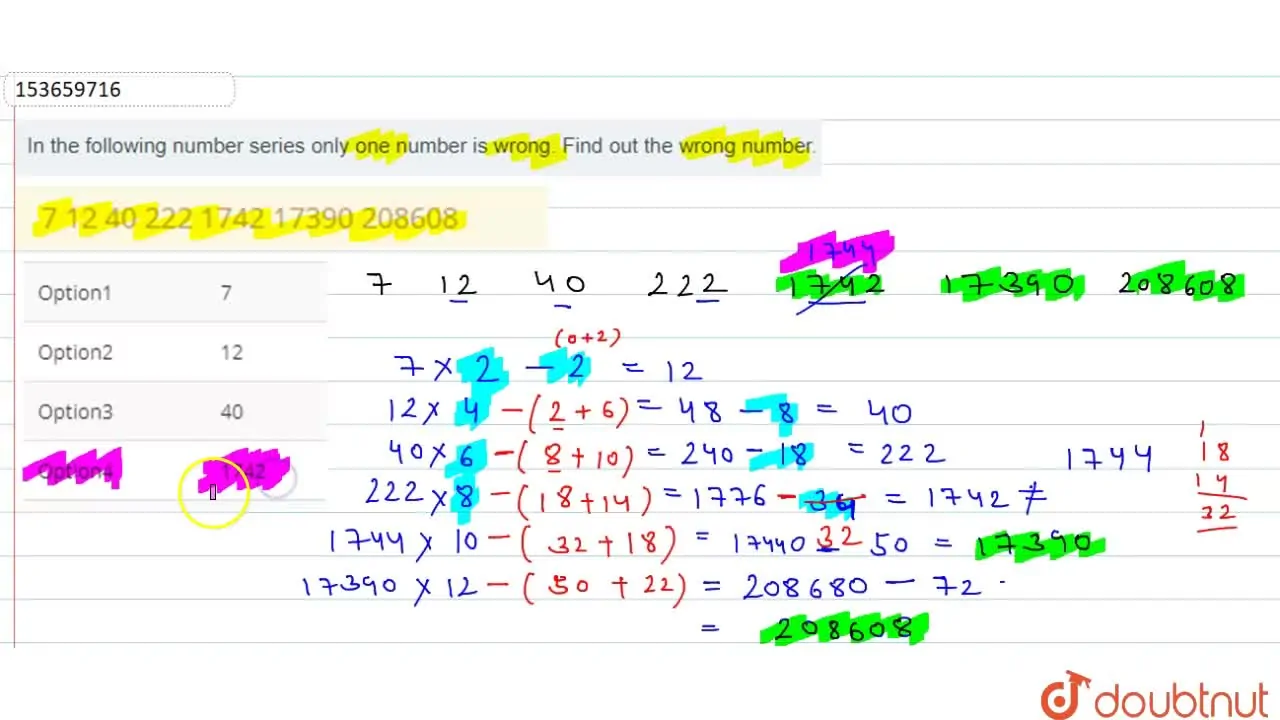 153659716
In the following number series only one number is wrong. Find out the wrong number.
7 12 40 222 1742 17390 208608
1744
7 12 40 222 1742 17390 208608
Option1 7
Option2 12
Option3 40
Option4 1742
(0+2)
7 × 2 - 2 = 12
12 × 4 - (2 + 6) = 48 - 8 = 40
40 × 6 - (8 + 10) = 240 - 18 = 222
222 × 8 - (18 + 14) = 1776 - 34 = 1742 ≠
32
1744
1744 × 10 - (32 + 18) = 17440 - 50 = 17390
17390 × 12 - (50 + 22) = 208680 - 72
= 208608
1
18
14
32
doubtnut